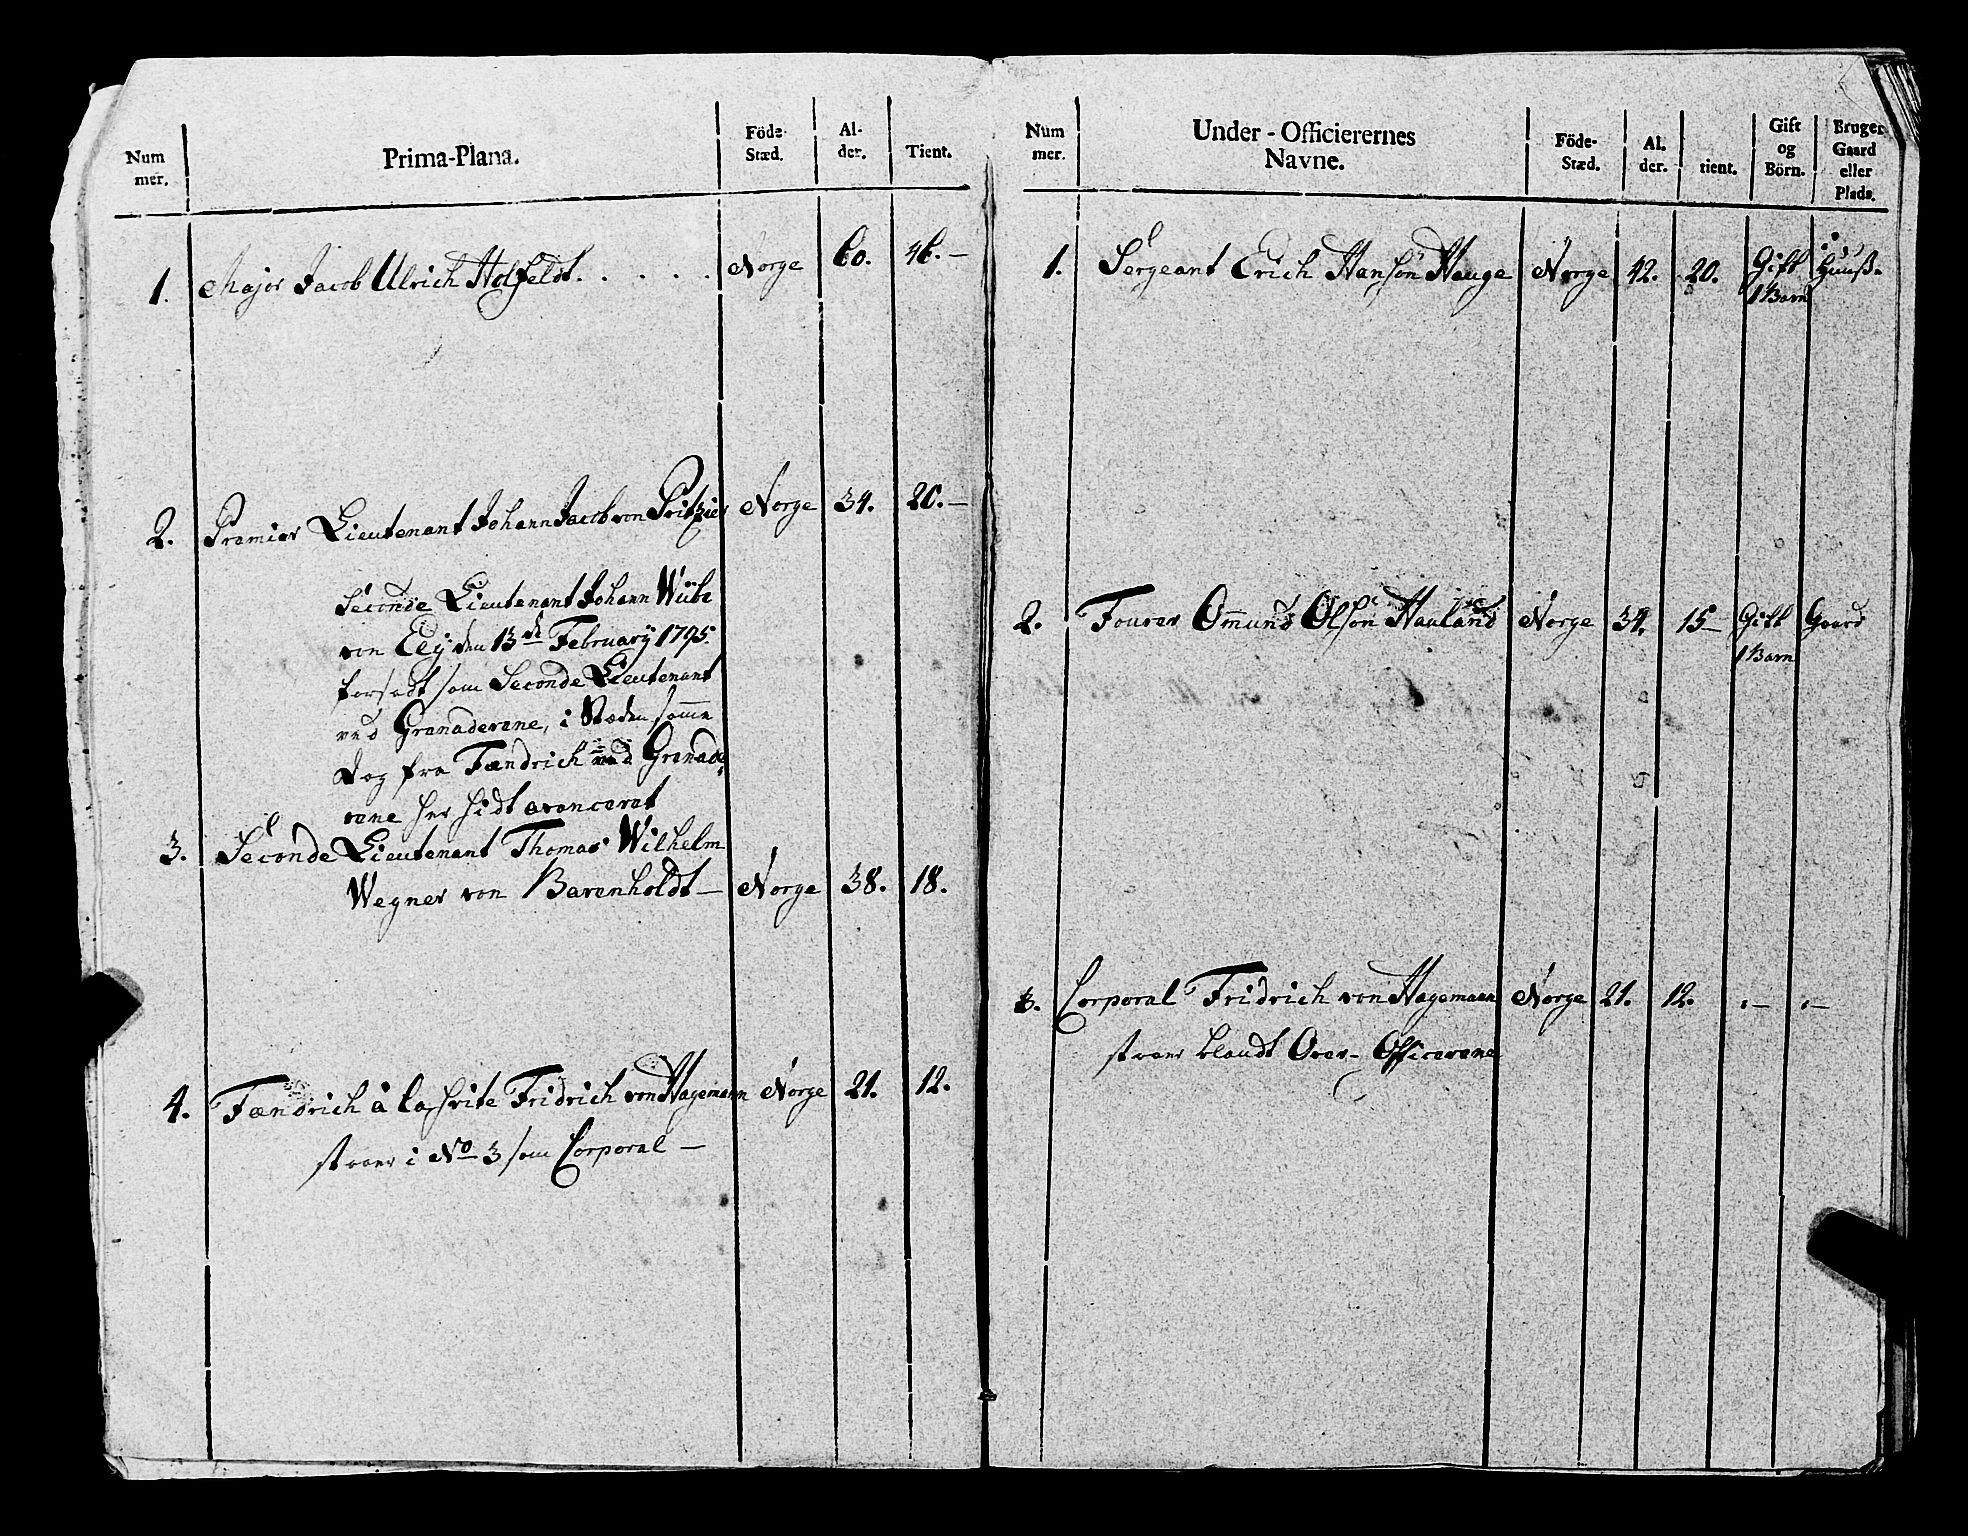 Num mer. Prima-Plana. Föde-Stæd. Al-der. Tient.
1. Major Jacob Ulrich Holfeldt. Norge 60. 46.-
2. Premier Lieutenant Johann Jacob von Pritzier Norge 34. 20.-
Seconde Lieutenant Johann Wiibe
von Eeÿ den 13de Februarÿ 1795.
forsadt som Seconde Lieutenant
ved Granaderene, i Stæden samme
Dog fra Fændrich ved Granade-
rene her hidt avanceret
3. Seconde Lieutenant Thomas Wilhelm
Wegner von Barenholdt - Norge 38. 18.
4. Fændrich à la Svite Fridrich von Hagemann Norge 21. 12.
staaer i No 3 som Corporal -
Num mer. Under-Officierernes Navne. Föde-Stæd. Al. der. tient. Gift og Börn. Bruger Gaard eller Plads.
1. Sergeant Erich Hansön Hauge Norge 42. 20. Gift 1 Barn Huus-
2. Fourer Omund Olsön Hauland Norge 34. 15- Gift 1 Barn Gaard
3. Corporal Fridrich von Hagemann Norge 21. 12. -
staaer blandt Over-Officerene